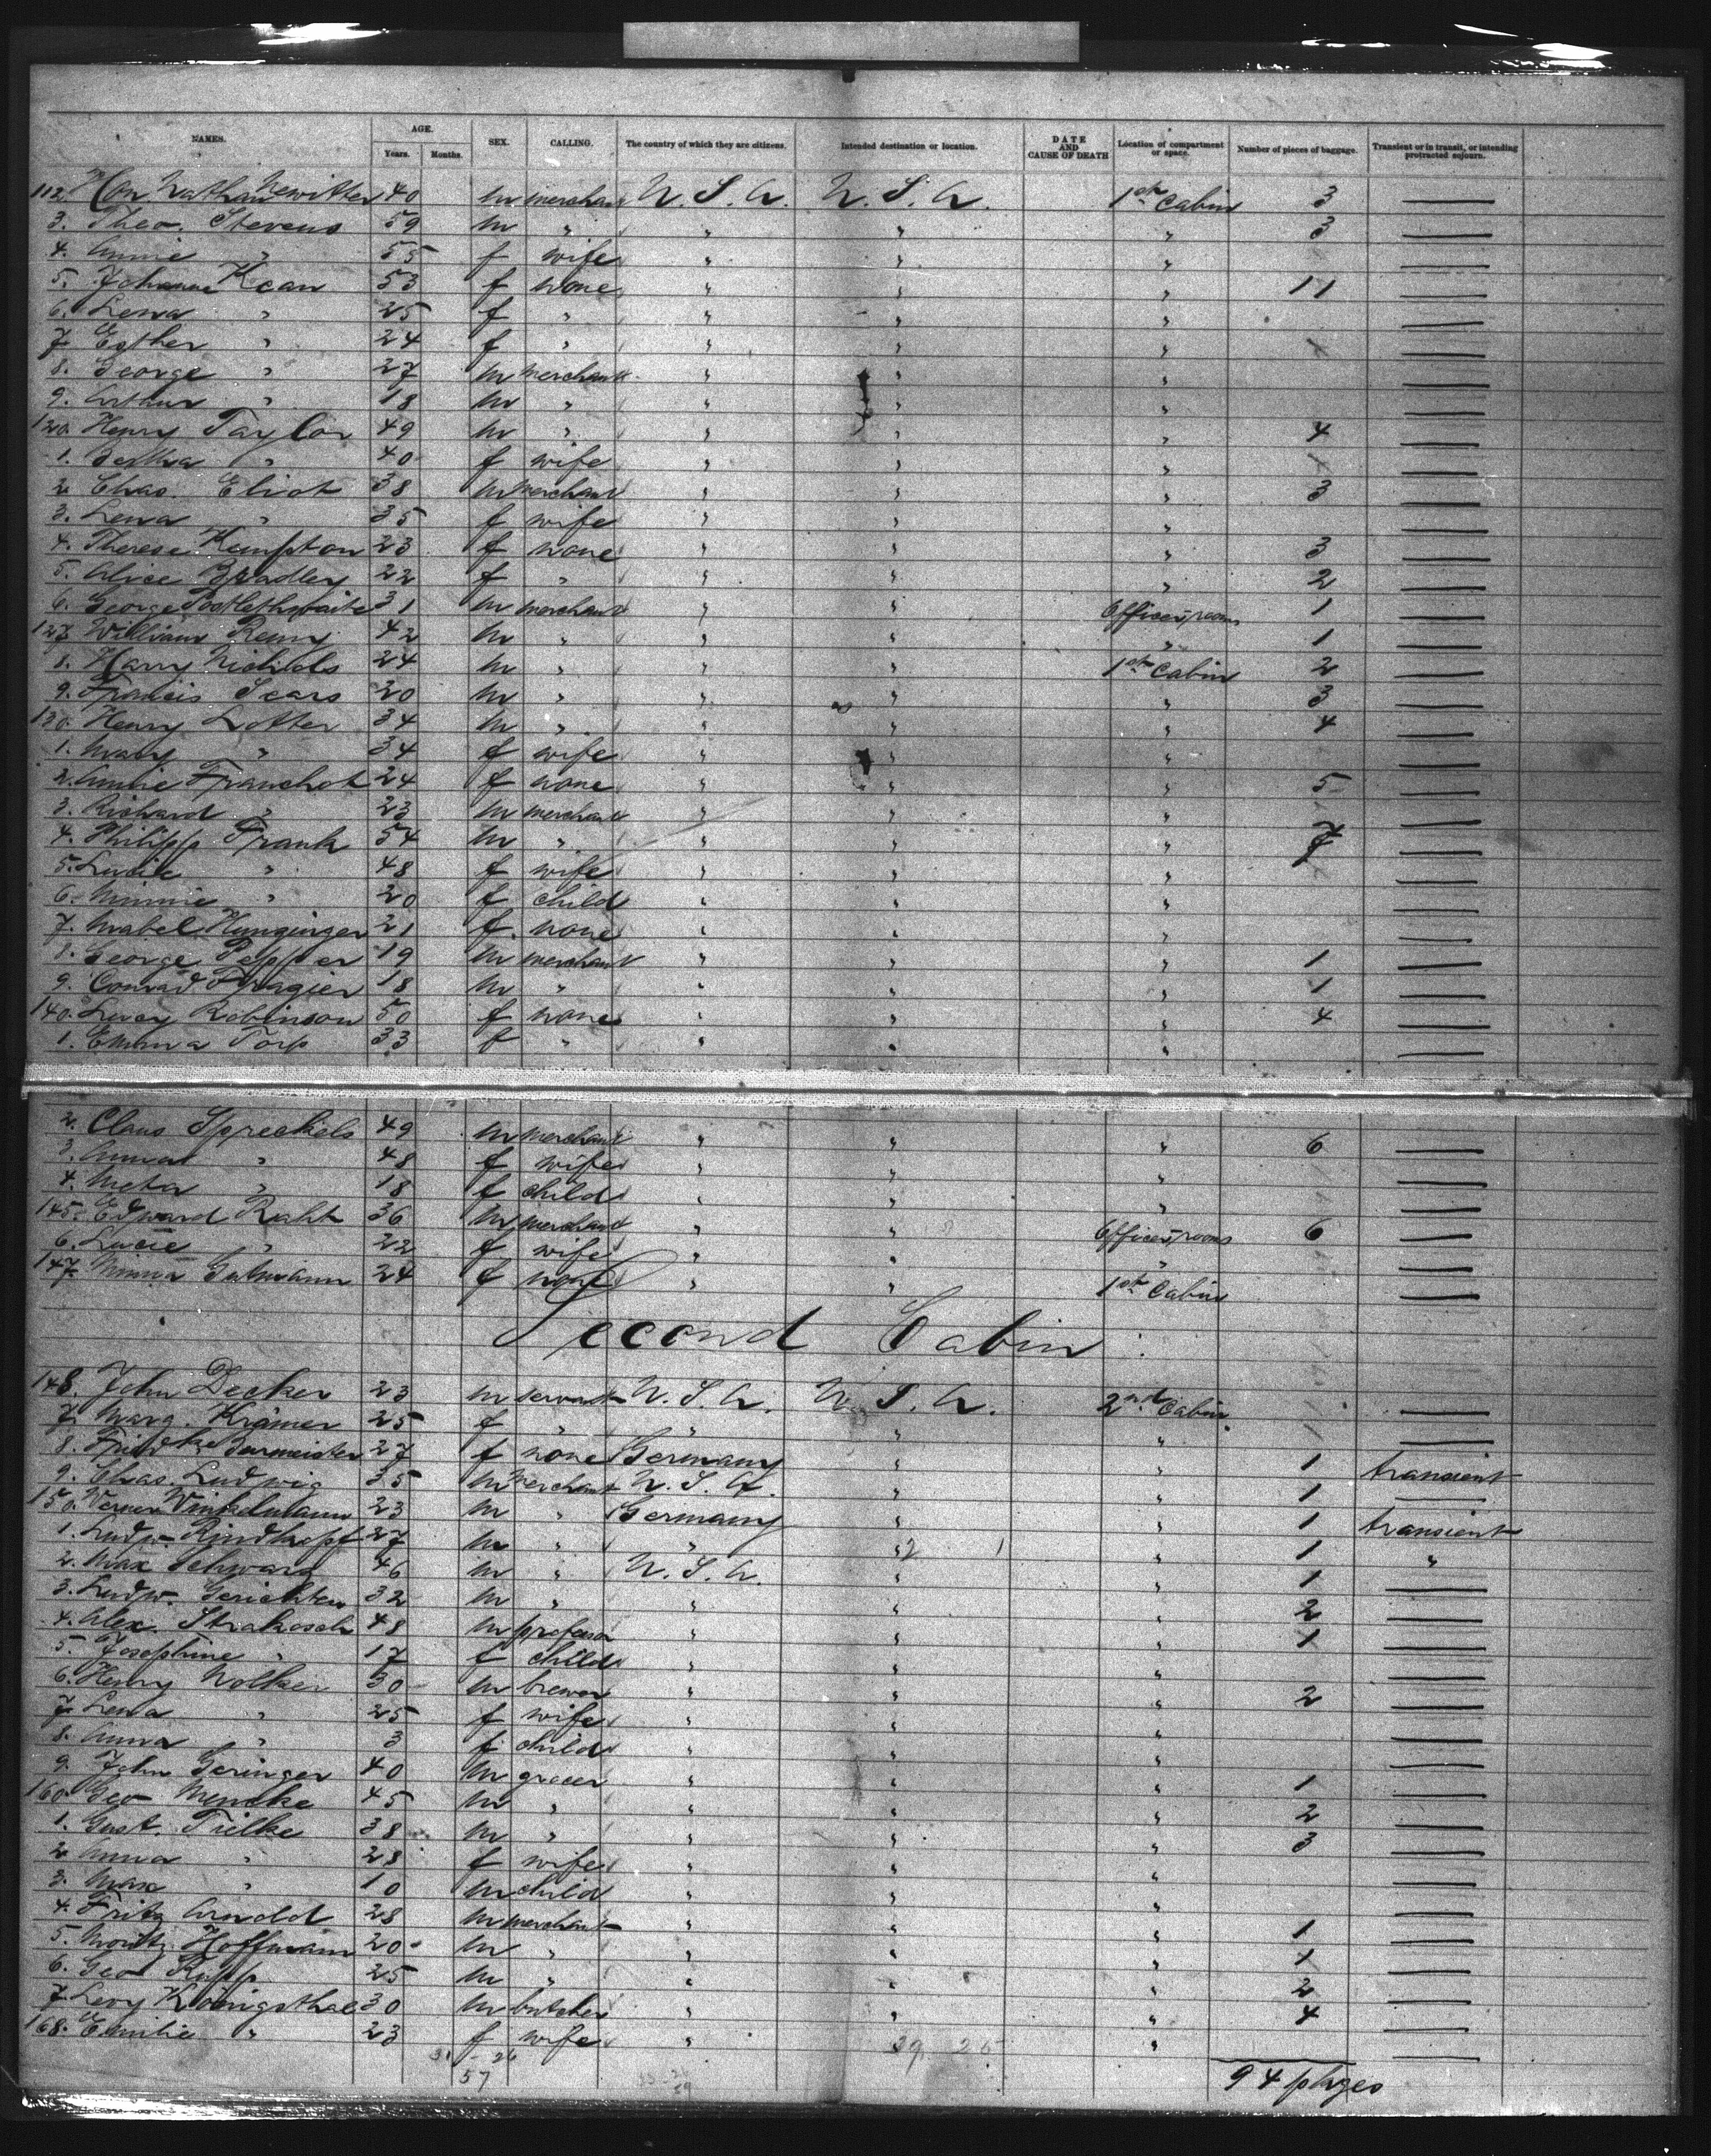 NAMES. AGE. Years. Months. SEX. CALLING. The country of which they are citizens. Intended destination or location. DATE AND CAUSE OF DEATH Location of compartment or space. Number of pieces of baggage. Transient or in transit, or intending protracted sojourn.
112. Nathan Newitter 40 m merchant U. S. A. U. S. A. 1st Cabin 3 —
3. Theo. Stevens 59 m " " " " 3 —
4. Annie " 55 f wife " " " —
5. Johanne Kean 53 f none " " " 11 —
6. Lena " 25 f " " " " —
7 Esther " 24 f " " " " —
8. George " 27 m merchant " " " —
9. Arthur " 18 m " " " " —
120. Henry Taylor 49 m " " " " 4 —
1. Bertha " 40 f wife " " " —
2 Chas. Eliot 38 m merchant " " " 3 —
3. Lena " 35 f wife " " " —
4. Therese Kempton 23 f none " " " 3 —
5. Alice Bradley 22 f " " " " 2 —
6. George Postlethwaite 31 m merchant " " Officersroom 1 —
127 William Remy 42 m " " " " 1 —
8. Harry Nichols 24 m " " " 1st Cabin 2 —
9. Francis Sears 20 m " " " " 3 —
130. Henry Lotter 34 m " " " " 4 —
1. Mary " 34 f wife " " " —
2. Annie Franchot 24 f none " " " 5 —
3. Richard " 23 m merchant " " " —
4. Philipp Frank 54 m " " " " 7 —
5. Lucie " 48 f wife " " " —
6. Minnie " 20 f child " " " —
7. Mabel Hunginger 21 f. none " " " —
8. George Pepper 19 m merchant " " " 1 —
9. Conrad Fragier 18 m " " " " 1 —
140. Lucy Robinson 50 f none " " " 4 —
1. Emma Torp 33 f " " " " —
2. Claus Spreckels 49 m merchant " " " 6 —
3. Anna " 48 f wife " " " —
4. Meta " 18 f child " " " —
145. Edward Raht 36 m merchant " " Officersrooms 6 —
6. Lucie " 22 f wife " " " —
147. Minna Gutmann 24 f none " " 1st Cabin —
Second Cabin
148. John Decker 23 m servant U. S. A. U. S. A. 2nd Cabin —
7. Marg. Krämer 25 f " " " " —
8. Friedke Burmeister 27 f none Germany " " 1 transient
9. Chas. Ludwig 35 m merchant U. S. A. " " 1 —
150. Werner Winkelmann 23 m " Germany " " 1 transient
1. Ludw. Rindskopf 27 m " " " " 1 "
2. Max Schwarz 46 m " U. S. A. " " 1 —
3. Ludw. Gerichten 32 m " " " " 2 —
4. Alex. Strakosch 48 m professor " " " 1 —
5. Josephine " 17 f child " " " —
6. Henry Nolker 30 m brewer " " " 2 —
7. Lena " 25 f wife " " " —
8. Anna " 3 f child " " " —
9. John Geringer 40 m grocer " " " 1 —
160. Geo Mencke 45 m " " " " 2 —
1. Gust. Tielke 38 m " " " " 3 —
2 Anna " 28 f wife " " " —
3. Max " 10 m child " " " —
4. Fritz Arnold 28 m merchant " " " 1 —
5. Moritz Hoffmann 20 m " " " " 1 —
6. Geo Rupp 25 m " " " " 2 —
7 Levy Königsthal 30 m butcher " " " 4 —
168. Emilie " 23 f wife " " " —
31 - 26 29 26
57 94 pkges